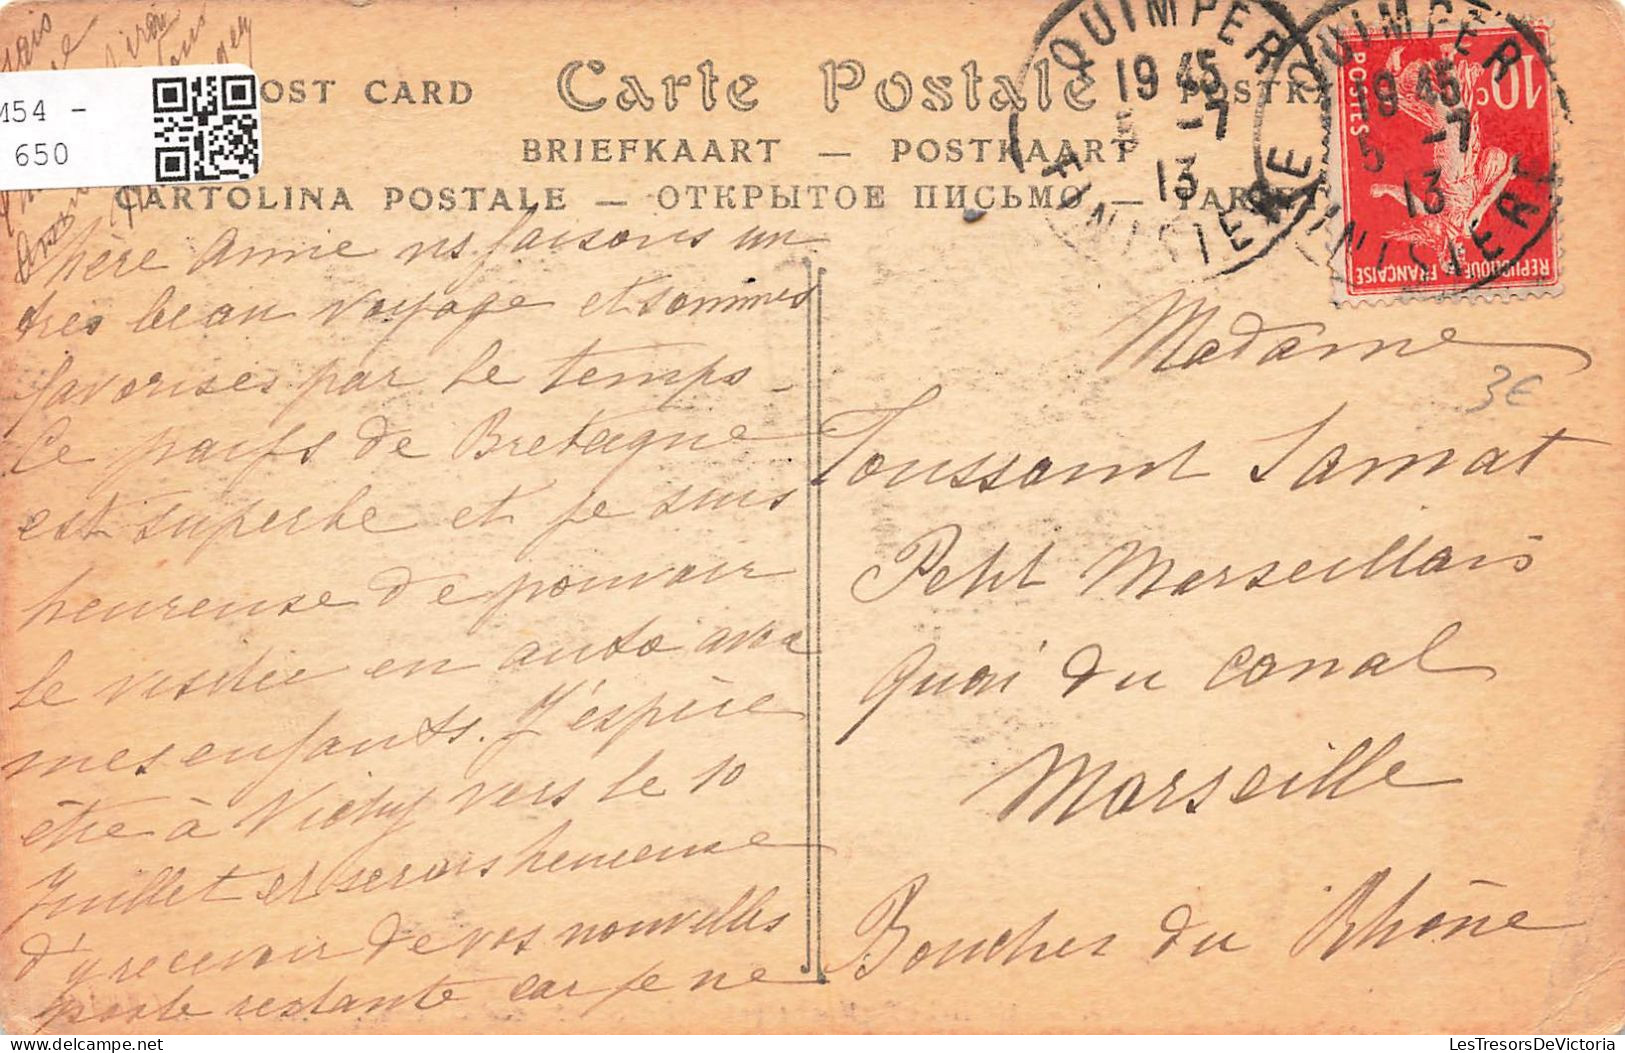 M54 -
650
OST CARD Carte Postale POSTKA
BRIEFKAART — POSTKAART
CARTOLINA POSTALE — ОТКРЫТОЕ ПИСЬМО —
QUIMPER
19 45
5 -7
13
FINISTERE
QUIMPER
19 45
5 -7
13
FINISTERE
10c
POSTES
REPUBLIQUE FRANÇAISE
chère Annie ns faisons un
tres beau voyage et sommes
favorises par le temps -
Ce paÿs de Bretagne
est superbe et je suis
heureuse de pouvoir
le visiter en auto avec
mes enfants. J'espère
être à Vichy vers le 10
Juillet et serais heureuse
d'y recevoir de vos nouvelles
poste restante car je ne
Madame
3€
Toussaint Samat
Petit Marseillais
Quai du Canal
Marseille
Bouches du Rhône
LesTresorsDeVictoria